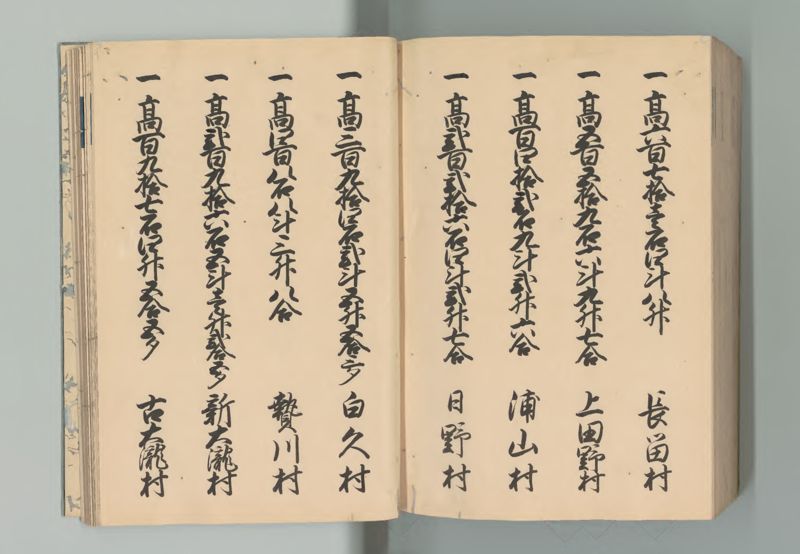 一高六百七拾壱石四斗八升 長留村
一高五百五拾九石六斗九升七合 上田野村
一高百四拾弐石九斗弐升六合 浦山村
一高弐百弐拾六石四斗弐升七合 日野村
一高三百九拾四石弐斗五升五合六夕 白久村
一高四百八石八斗三升八合 贄川村
一高弐百九拾六石五斗壱升弐合五夕 新大滝村
一高百九拾七石四升五合五夕 古大滝村